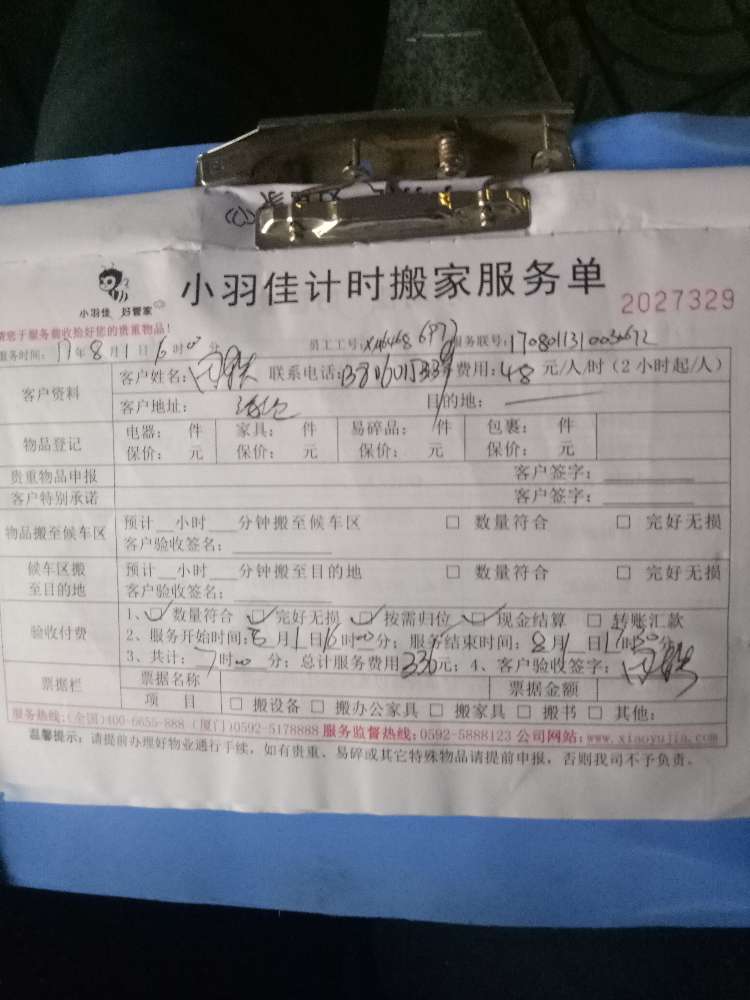 小羽佳计时搬家服务单
小羽佳 好管家
2027329
请您于服务前收拾好您的贵重物品!
服务时间: 17年8月1日16时00分 员工工号: 服务联号:
客户资料 客户姓名: 联系电话: 费用:48元/人/时(2小时起/人)
客户地址: 目的地:
物品登记 电器: 件 家具: 件 易碎品: 件 包裹: 件
保价: 元 保价: 元 保价: 元 保价: 元
贵重物品申报 客户签字:
客户特别承诺 客户签字:
物品搬至候车区 预计__小时___分钟搬至候车区 □ 数量符合 □ 完好无损
客户验收签名:
候车区搬至目的地 预计__小时___分钟搬至目的地 □ 数量符合 □ 完好无损
客户验收签名:
验收付费 1、☑数量符合 ☑完好无损 ☑按需归位 ☑现金结算 □ 转账汇款
2、服务开始时间:8月1日16时00分; 服务结束时间:8月1日时分
3、共计:7时00分; 总计服务费用336元; 4、客户验收签字:
票据栏 票据名称 票据金额
项 目 □ 搬设备 □ 搬办公家具 □ 搬家具 □ 搬书 □ 其他:
服务热线:(全国)400-6655-888 (厦门)0592-5178888 服务监督热线:0592-5888123 公司网站:www.xiaoyujia.com
温馨提示: 请提前办理好物业通行手续, 如有贵重、易碎或其它特殊物品请提前申报, 否则我司不予负责。